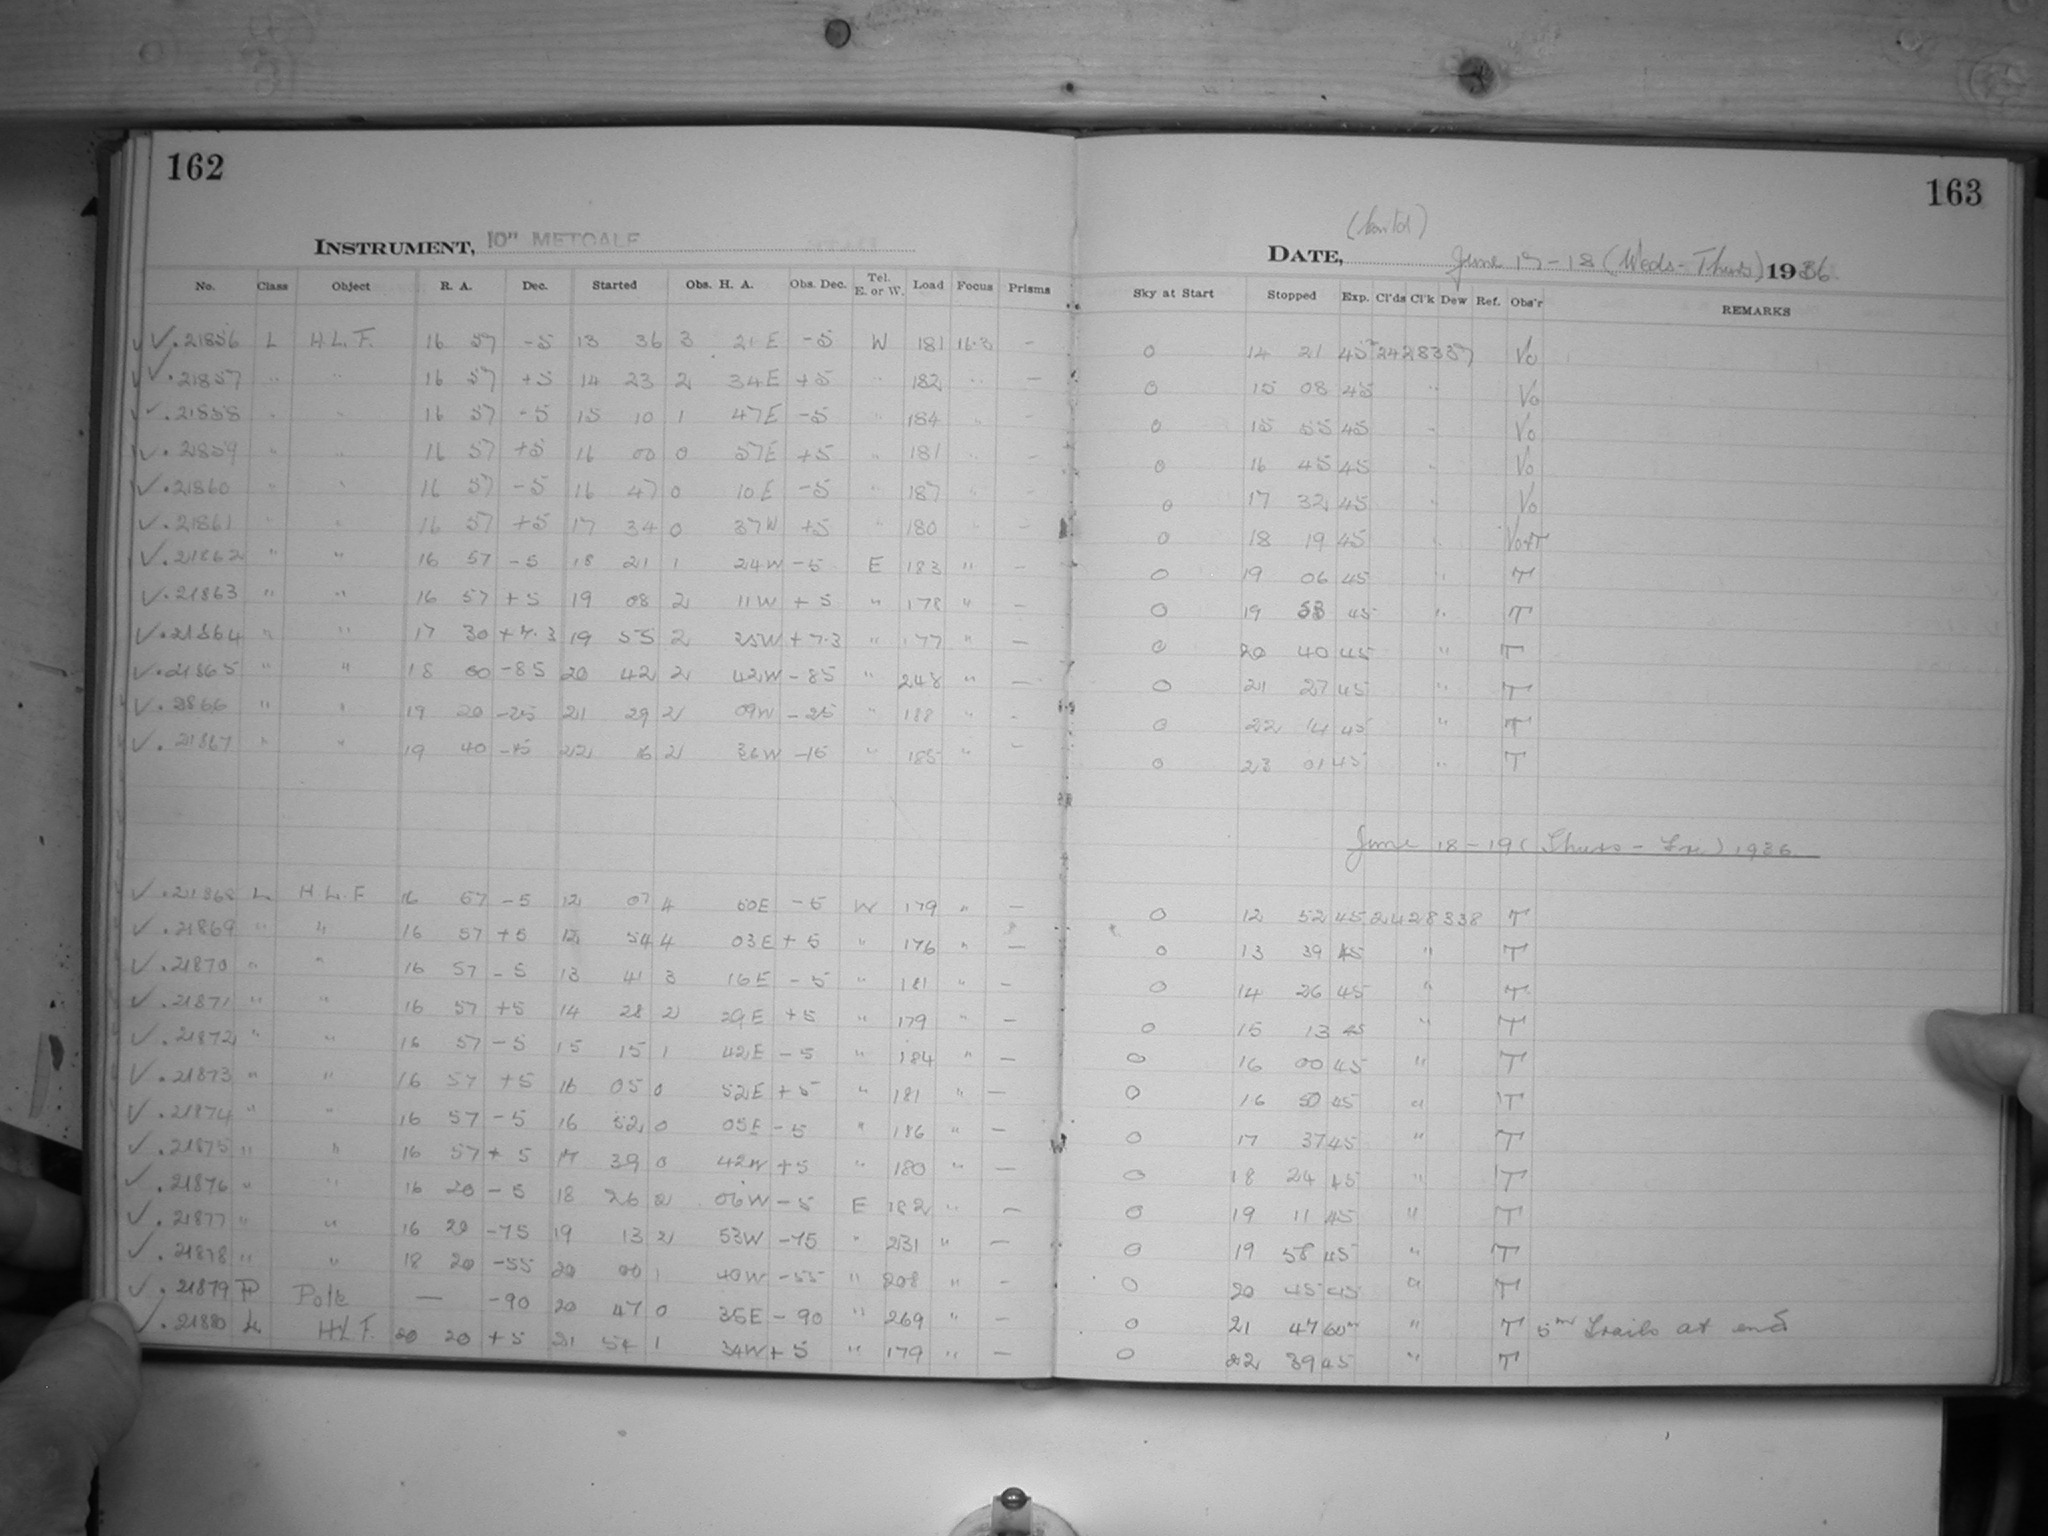 162
163
INSTRUMENT, 10" METCALF
(Contd)
DATE, June 17-18 (Weds-Thurs) 1936
No. Class Object R. A. Dec. Started Obs. H. A. Obs. Dec. Tel. E. or W. Load Focus Prisms Sky at Start Stopped Exp. Cl'ds Cl'k Dew Ref. Obs'r REMARKS
✓ ✓. 21856 L H.L.F. 16 57 -5 13 36 3 21E -5 W 181 16.3 - 0 14 21 45 2428337 Vo
✓ ✓. 21857 " " 16 57 +5 14 23 2 34E +5 " 182 " - 0 15 08 45 " Vo
✓. 21858 " " 16 57 -5 15 10 1 47E -5 " 184 " - 0 15 55 45 " Vo
✓. 21859 " " 16 57 +5 16 00 0 57E +5 " 181 " - 0 16 45 45 " Vo
✓. 21860 " " 16 57 -5 16 47 0 10E -5 " 187 " - 0 17 32 45 " Vo
✓. 21861 " " 16 57 +5 17 34 0 37W +5 " 180 " - 0 18 19 45 "
✓. 21862 " " 16 57 -5 18 21 1 24W -5 E 183 " - 0 19 06 45 " T
✓. 21863 " " 16 57 +5 19 08 2 11W +5 " 178 " - 0 19 53 45 " T
✓. 21864 " " 17 30 +7.3 19 55 2 25W +7.3 " 177 " - 0 20 40 45 " T
✓. 21865 " " 18 00 -85 20 42 2 42W -85 " 248 " - 0 21 27 45 " T
✓. 2866 " " 19 20 -25 21 29 2 09W -25 " 188 " - 0 22 14 45 " T
✓. 21867 " " 19 40 -15 22 16 2 36W -15 " 185 " - 0 23 01 45 " T
June 18-19 (Thurs - Fri.) 1936
✓. 21868 L H.L.F 16 57 -5 12 07 4 50E -5 W 179 " - 0 12 52 45 2428338 T
✓. 21869 " " 16 57 +5 12 54 4 03E +5 " 176 " - 0 13 39 45 " T
✓. 21870 " " 16 57 -5 13 41 3 16E -5 " 181 " - 0 14 26 45 " T
✓. 21871 " " 16 57 +5 14 28 2 29E +5 " 179 " - 0 15 13 45 " T
✓. 21872 " " 16 57 -5 15 15 1 42E -5 " 184 " - 0 16 00 45 " T
✓. 21873 " " 16 57 +5 16 05 0 52E +5 " 181 " - 0 16 50 45 " T
✓. 21874 " " 16 57 -5 16 52 0 05E -5 " 186 " - 0 17 37 45 " T
✓. 21875 " " 16 57 +5 17 39 0 42W +5 " 180 " - 0 18 24 45 " T
✓. 21876 " " 16 20 -5 18 26 2 06W -5 E 182 " - 0 19 11 45 " T
✓. 21877 " " 16 20 -75 19 13 2 53W -75 " 231 " - 0 19 58 45 " T
✓. 21878 " " 18 20 -55 20 00 1 40W -55 " 208 " - 0 20 45 45 " T
✓. 21879 P Pole — -90 20 47 0 35E -90 " 269 " - 0 21 47 60m " T 5m trails at end
✓. 21880 L H.L.F. 20 20 +5 21 54 1 34W +5 " 179 " - 0 22 39 45 " T